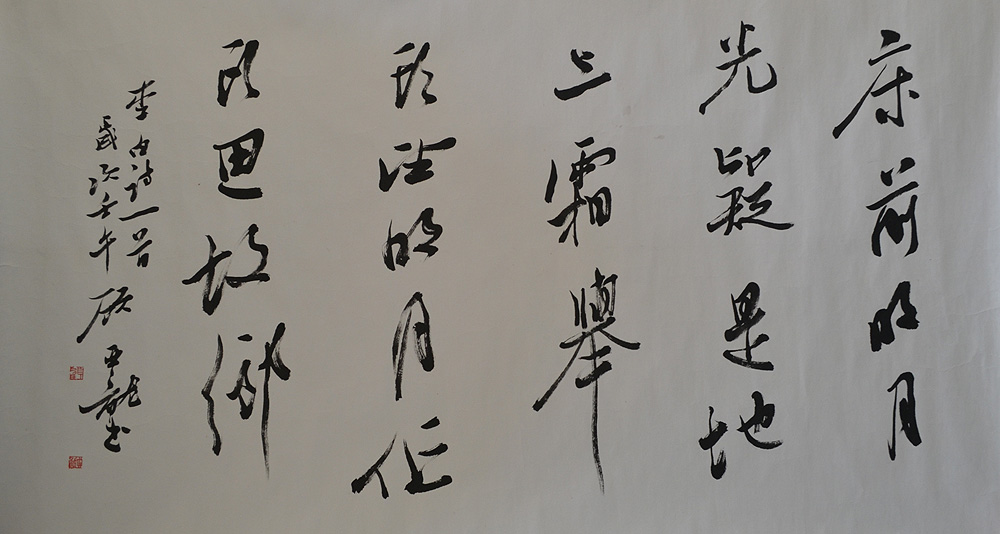 床前明月
光疑是地
上霜舉
頭望明月低
頭思故鄉
李白詩一首
歲次壬午 亞龍书